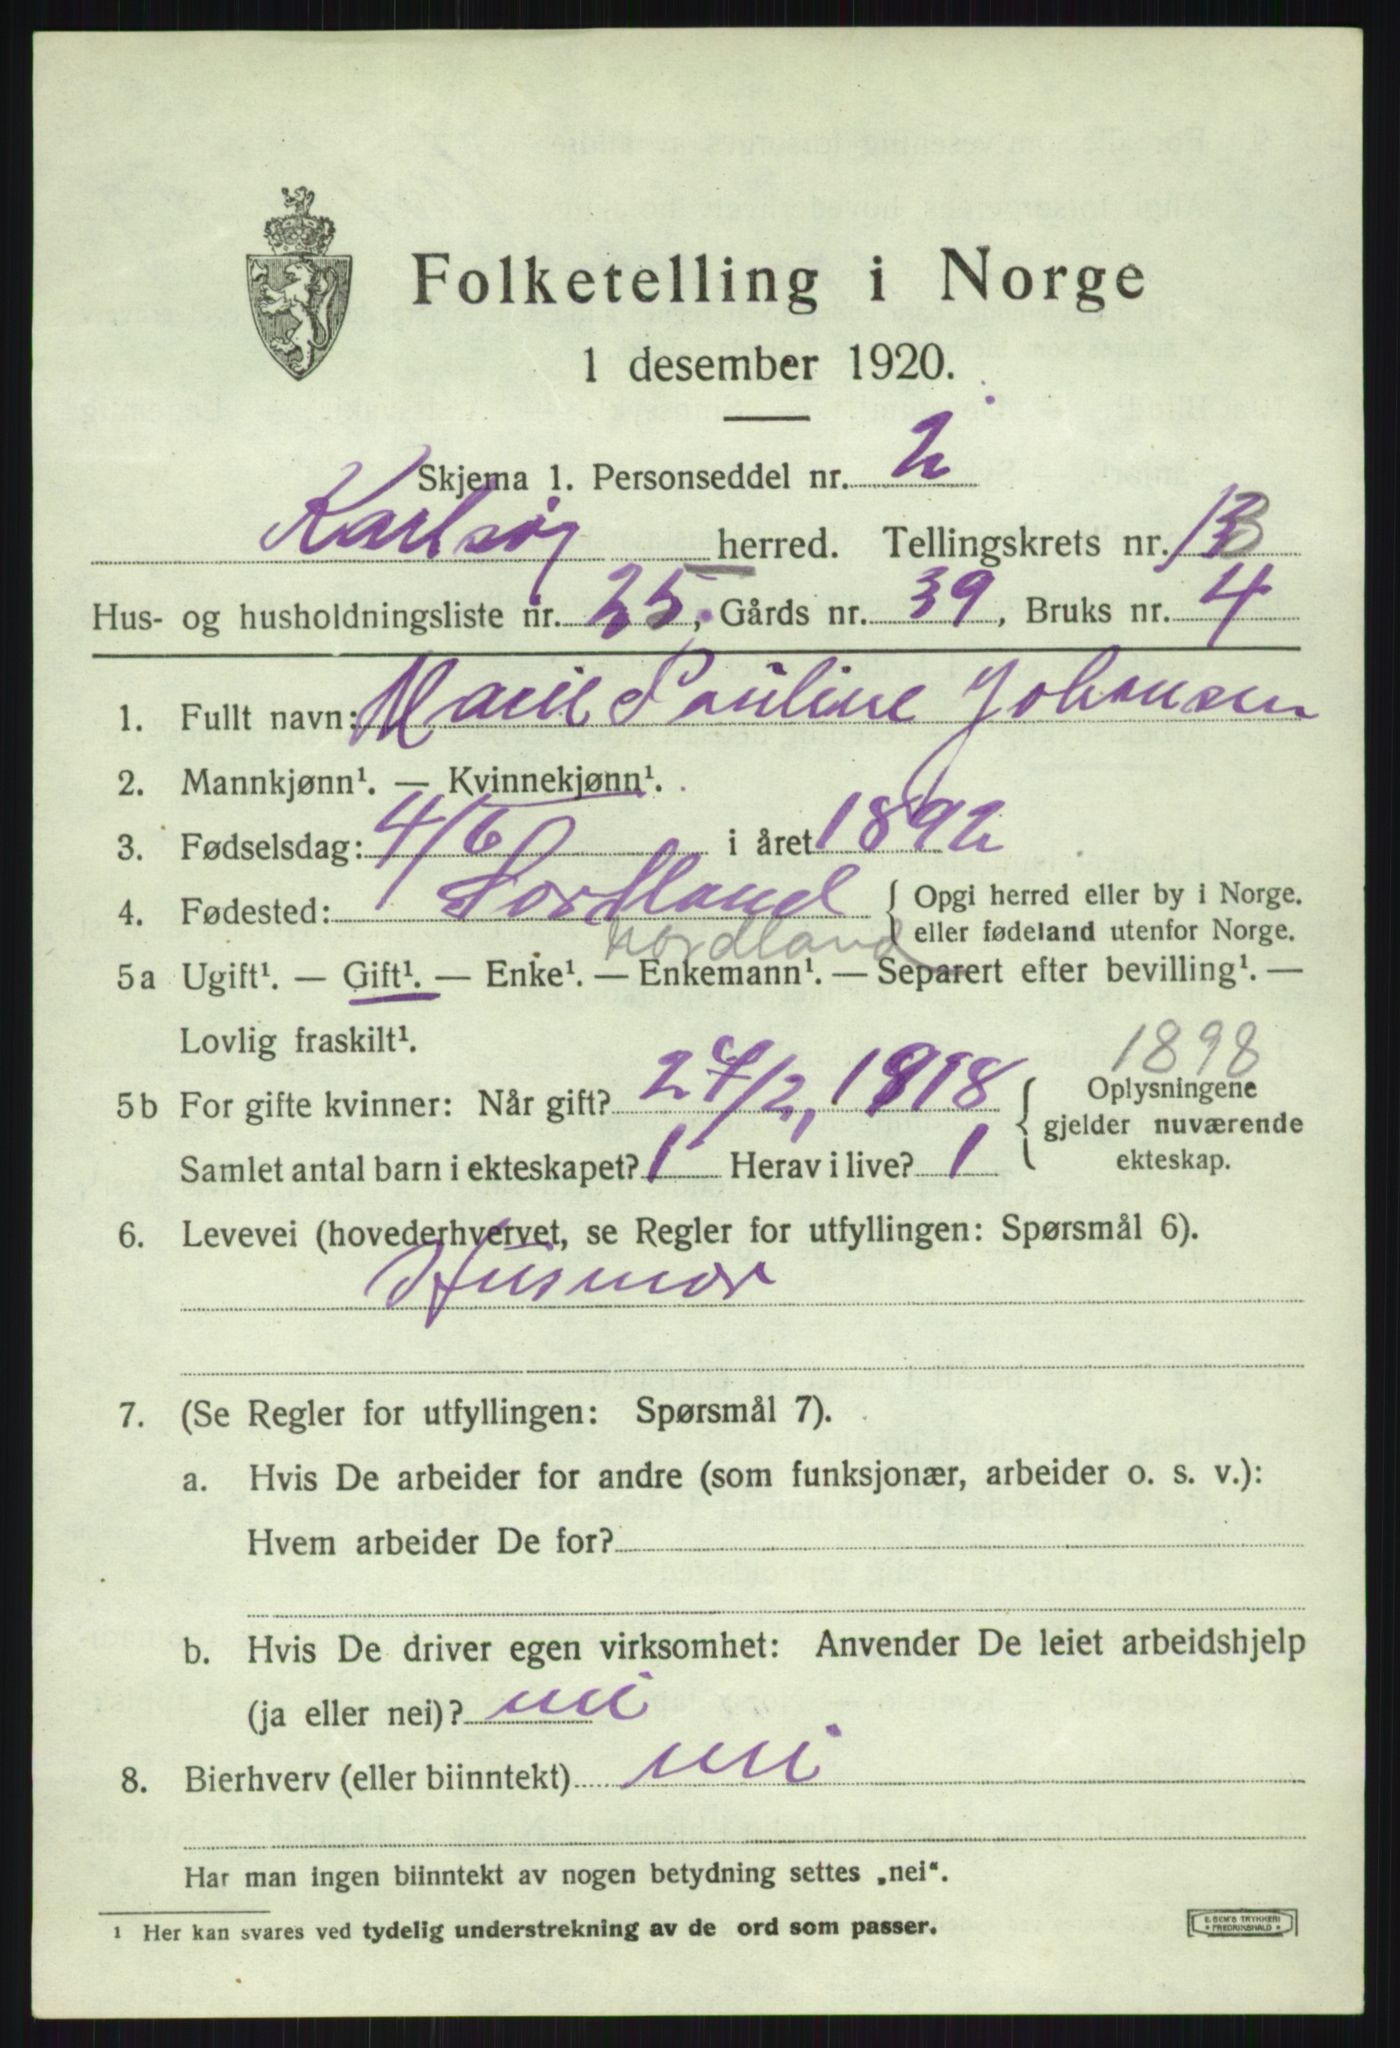 Folketelling i Norge
1 desember 1920.
Skjema 1. Personseddel nr. 2
Karlsøy herred. Tellingskrets nr. 13
Hus- og husholdningsliste nr. 25, Gårds nr. 39, Bruks nr. 4
1. Fullt navn: Marie Pauline Johansen
2. Mannkjønn¹. — Kvinnekjønn¹.
3. Fødselsdag: 4/6 i året 1892
4. Fødested: Sortland { Opgi herred eller by i Norge.
Nordland eller fødeland utenfor Norge.
5a Ugift¹. — Gift¹. — Enke¹. — Enkemann¹. — Separert efter bevilling¹. —
Lovlig fraskilt¹.
1898
5b For gifte kvinner: Når gift? 27/2, 1918 { Oplysningene
gjelder nuværende
Samlet antal barn i ekteskapet? 1 Herav i live? 1 ekteskap.
6. Levevei (hovederhvervet, se Regler for utfyllingen: Spørsmål 6).
Husmor
7. (Se Regler for utfyllingen: Spørsmål 7).
a. Hvis De arbeider for andre (som funksjonær, arbeider o. s. v.):
Hvem arbeider De for?
b. Hvis De driver egen virksomhet: Anvender De leiet arbeidshjelp
(ja eller nei)? nei
8. Bierhverv (eller biinntekt) nei
Har man ingen biinntekt av nogen betydning settes „nei“.
¹ Her kan svares ved tydelig understrekning av de ord som passer.
E. SEM'S TRYKKERI
FREDRIKSHALD